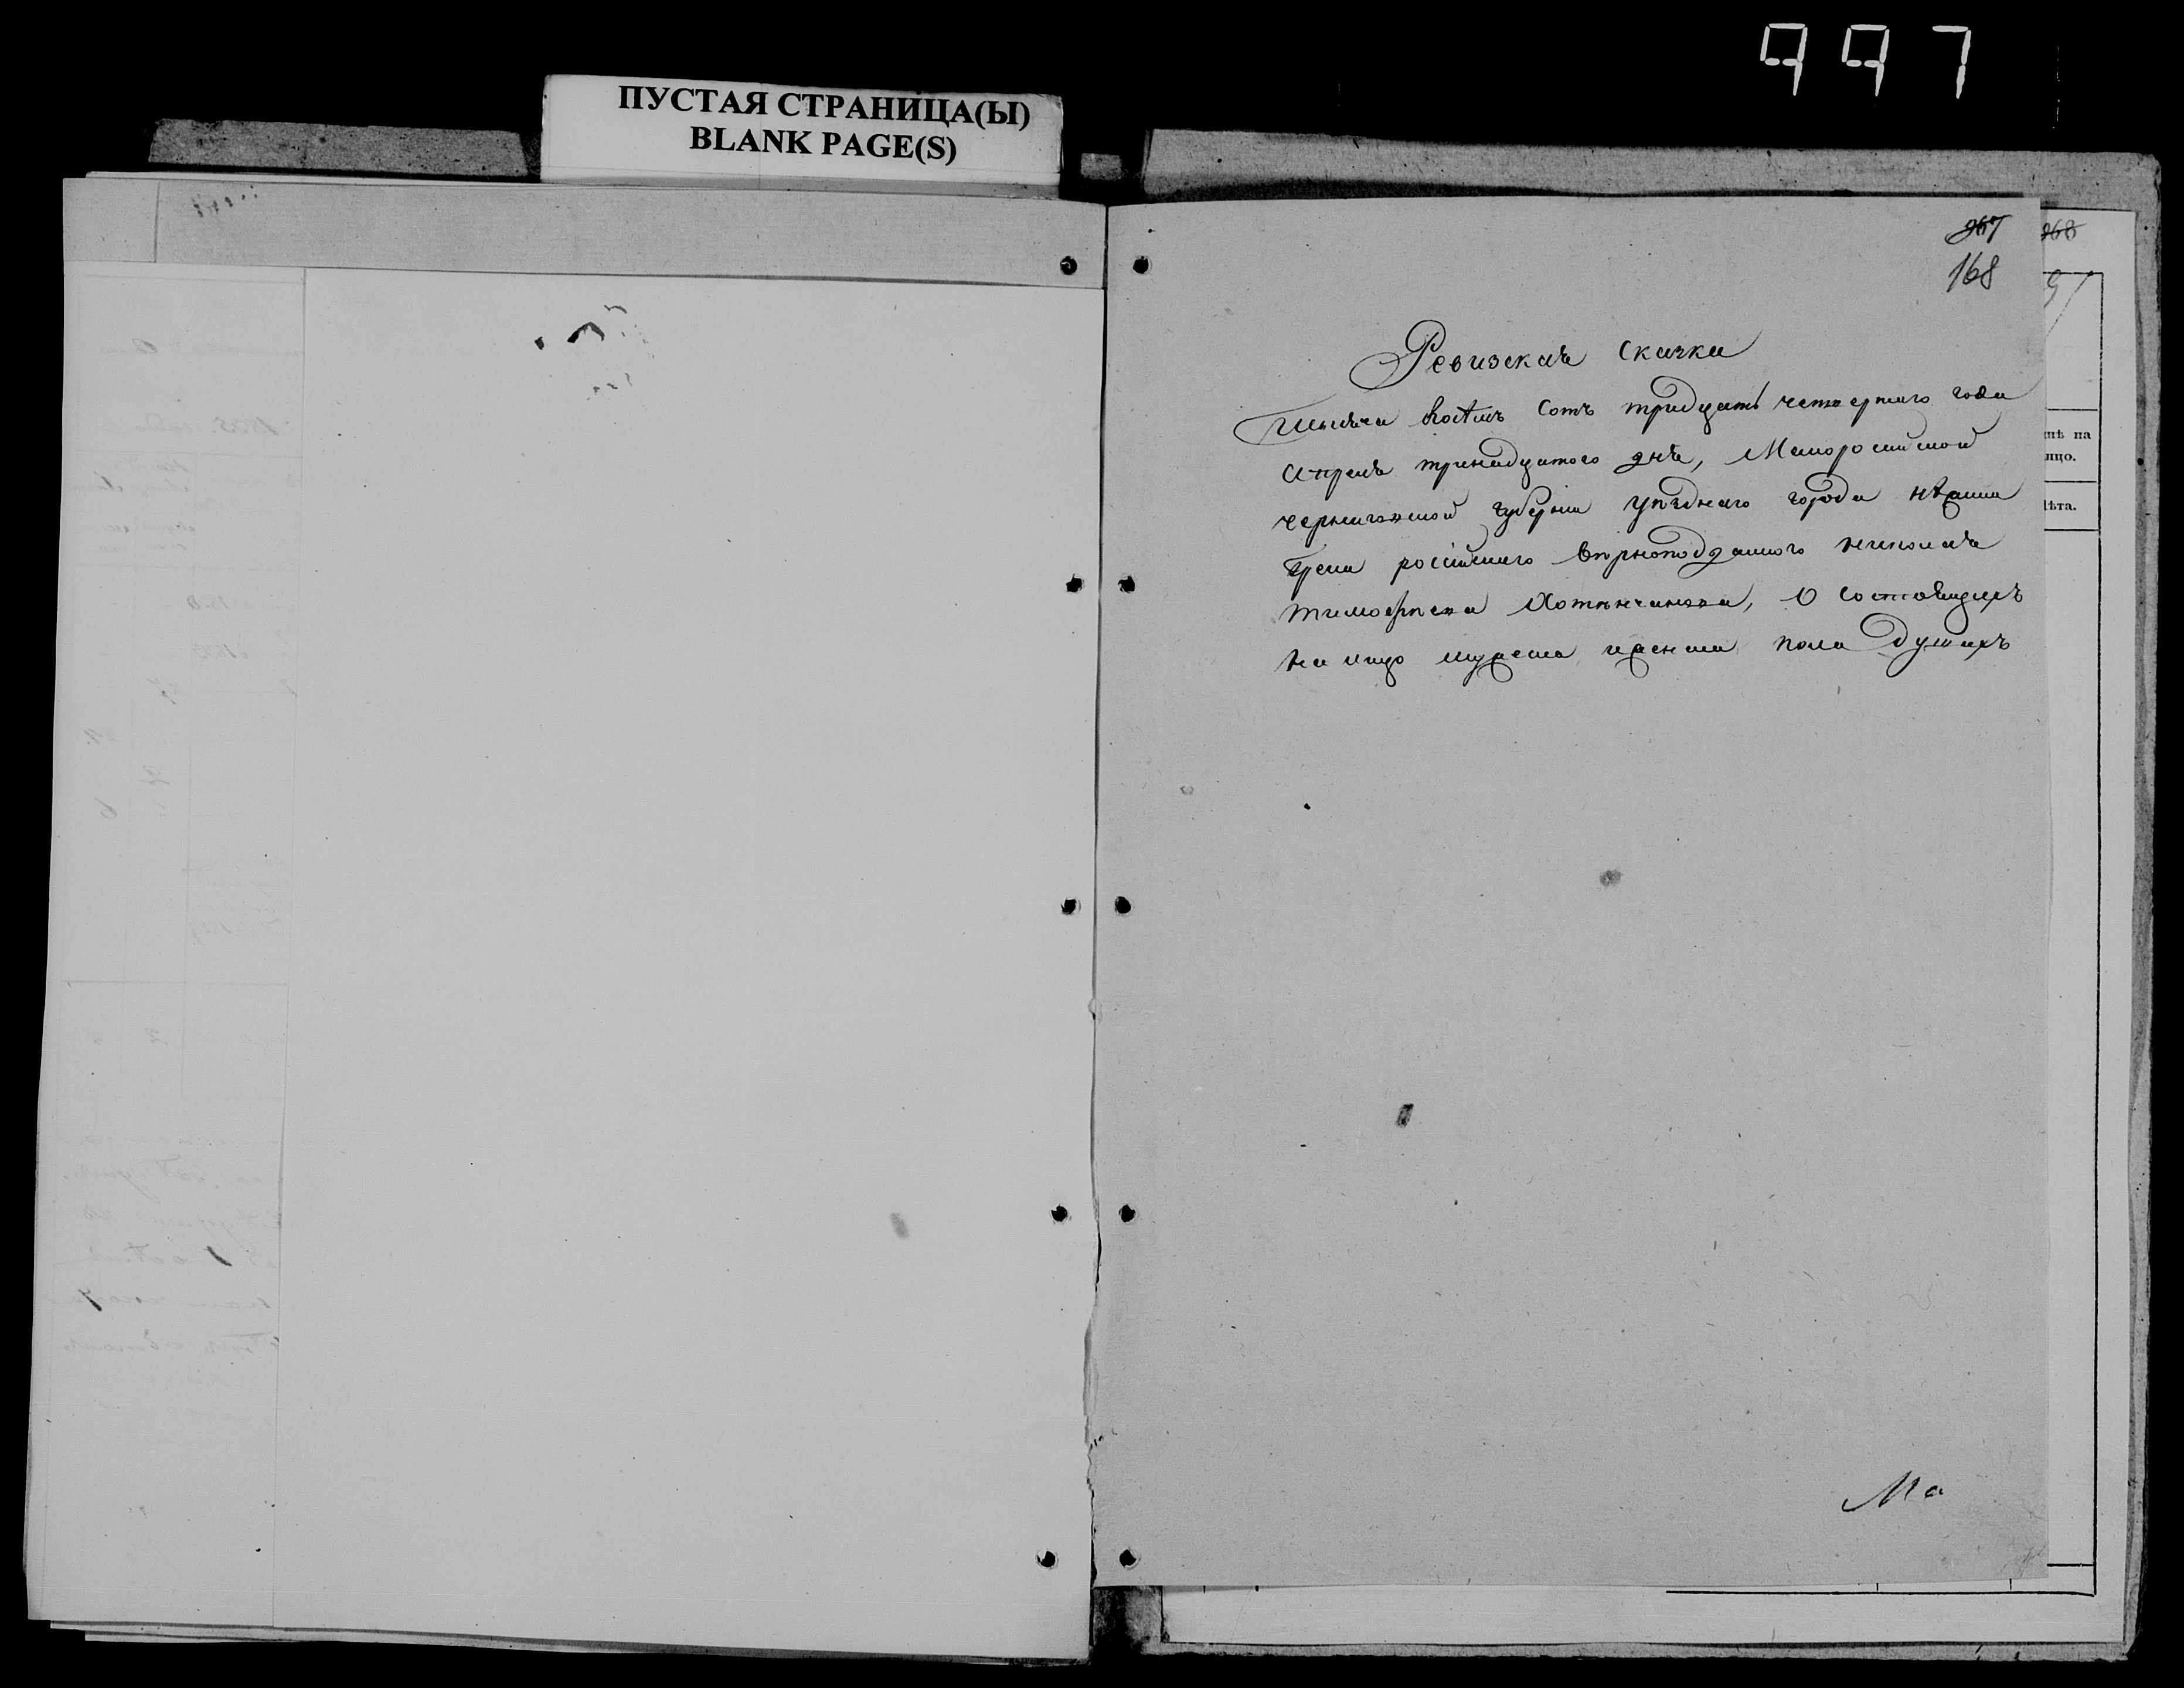 997
ПУСТАЯ СТРАНИЦА(Ы)
BLANK PAGE(S)
967
168
968
Ревизская сказка
Тысяча восѣмъ сотъ тридцать четвертаго года
апреля тринадцатого дня, Малоросийской
черниговской губернии уѣзднаго города нѣжина
грека росийскаго вѣрноподданого николая
тимофѣева, О состоящихъ
на лицо мужеска иженска пола душахъ
нѣ на
лицо.
Лѣта.
Ма